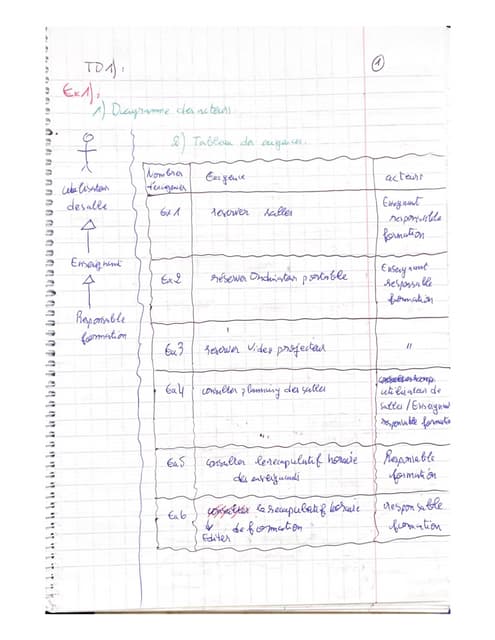 TD1).
1
Ex1).
1) Diagramme des acteurs
2) Tableau des exigences.
utilisateur
de salle
Enseignant
Responsable
formation
Nombres
d'exigences
Exigence
acteurs
Ex 1
reserver salles
Enseignant
responsable
formation
Ex 2
réserver Ordinateur portable
Enseignant
responsable
formation
Ex 3
reserver video projecteur
"
Ex 4
consulter planning des salles
utilisateur de
salles / Enseignant
responsable formation
Ex 5
consulter le recapulatif horaire
des enseignants
Responsable
formation
Ex 6
consulter le recapulatif horaire
de formation
Editer
responsable
formation